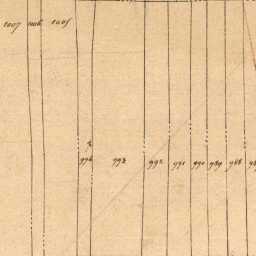 1007 1006 1005
994 993 992 991 990 989 988